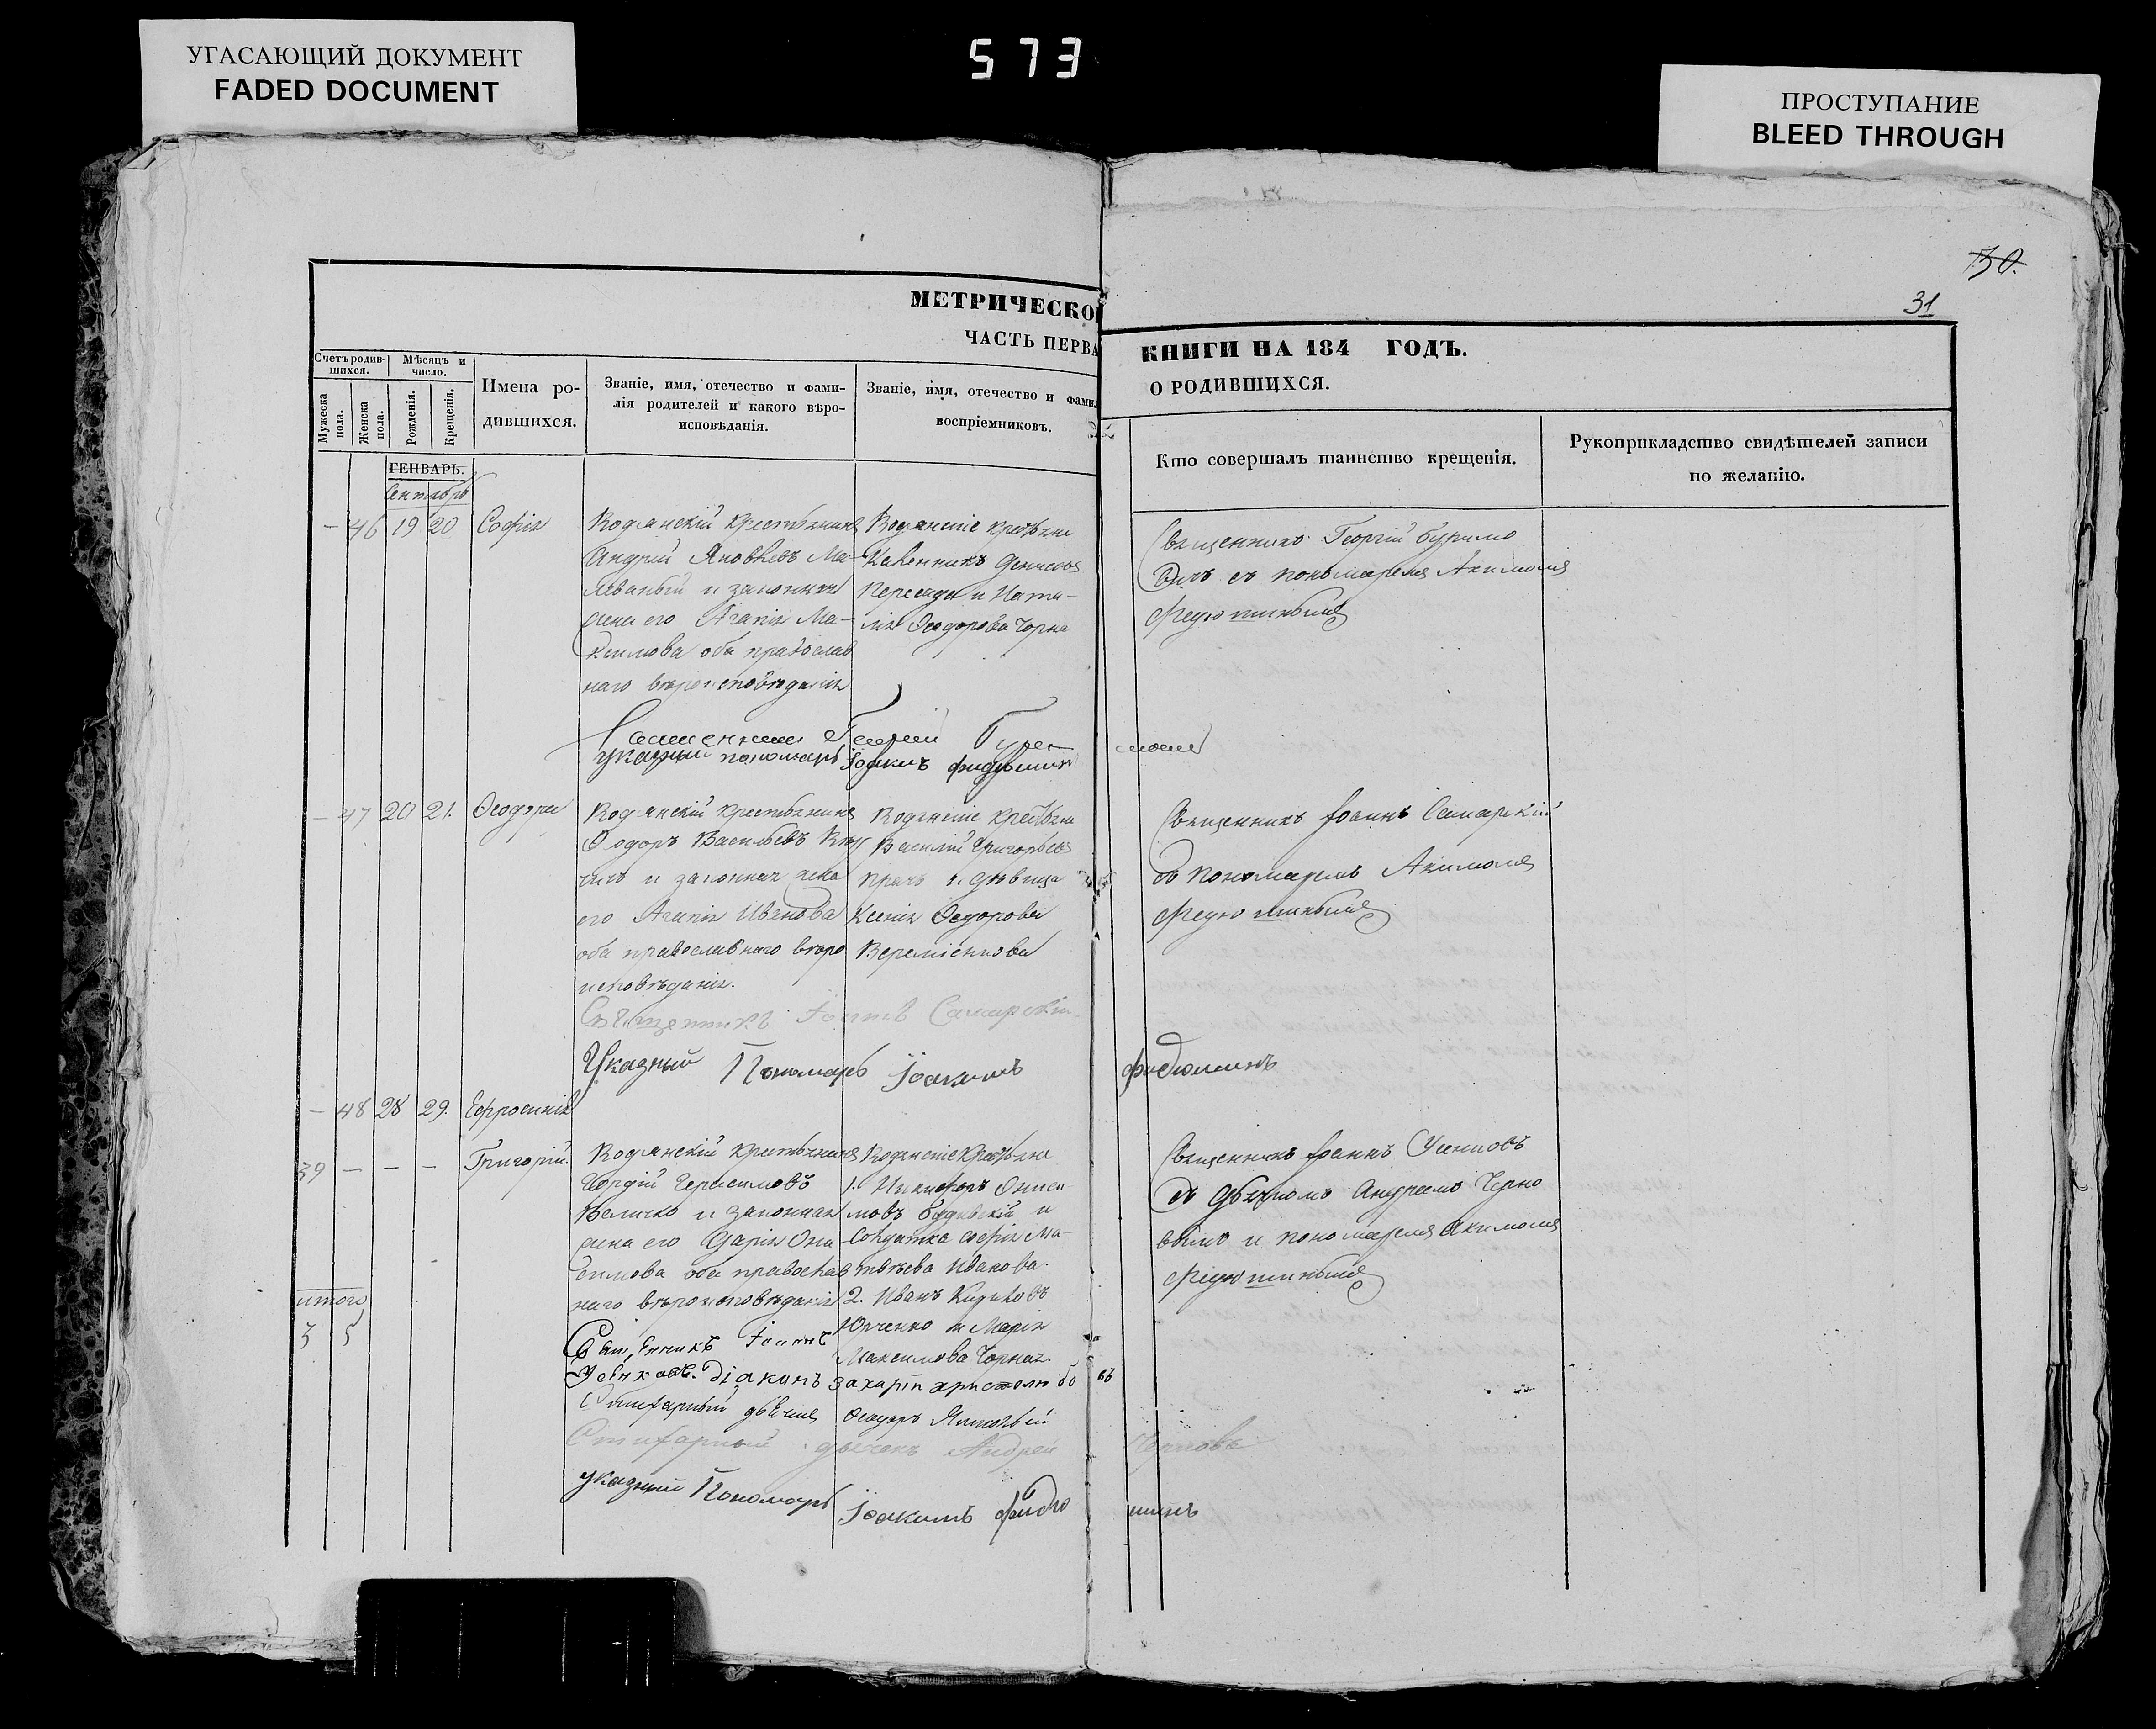 УГАСАЮЩИЙ ДОКУМЕНТ
FADED DOCUMENT
573
ПРОСТУПАНИЕ
BLEED THROUGH
30.
31
МЕТРИЧЕСКОЙ
ЧАСТЬ ПЕРВА
КНИГИ НА 184 ГОДЪ.
О РОДИВШИХСЯ.
Счетъ родив-
шихся.
Мѣсяцъ и
число.
Мужеска
пола.
Женска
пола.
Рожденія.
Крещенія.
Имена ро-
дившихся.
Званіе, имя, отечество и фами-
лія родителей и какого вѣро-
исповѣданія.
Званіе, имя, отечество и фами
воспріемниковъ.
Кто совершалъ таинство крещенія.
Рукоприкладство свидѣтелей записи
по желанію.
ГЕНВАРЬ.
Сентябрь
— 46 19 20 Софія
Водянскій крестьянинъ
Андрей Яковлевъ Ма-
и законная
жена его Агапія Ма-
ксимова оба православ
наго вѣроисповѣданія
Водянскіе крестьяне
Денисовъ
и Ната-
лія Ѳеодорова Чорна
Священникъ Георгій Буримо
вичъ съ пономаремъ Акимомъ
Федюшинымъ
Священникъ Георгій
указный пономарь Іоакимъ
— 47 20 21. Ѳеодора
Водянскій крестьянинъ
Ѳеодоръ Васильевъ
и законная жена
его Агапія Иванова
оба православнаго вѣро
исповѣданія.
Водянскіе крестьяне
Василій Григорьевъ
и дѣвица
Ксенія Ѳеодорова
Веремієнкова
Священникъ Іоаннъ Самарскій
съ пономаремъ Акимомъ
Федюшинымъ
Священникъ Іоаннъ Самарскій
Указный Пономарь Іоакимъ Фидюшинъ
— 48 28 29. Ефросинія
39 — — — Григорій.
Водянскій крестьянинъ
Герасимовъ
Величко и законная
жена его Дарія Они
симова оба православ
наго вѣроисповѣданія
Водянскіе крестьяне
1. Никифоръ Ониси
мовъ и
Солдатка Софія Ма-
твѣева Иванова.
2. Иванъ
Юрченко и Марія
Максимова Чорная.
Священникъ Іоаннъ Усенковъ
съ дьячкомъ Андреемъ Черно
вымъ и пономаремъ Акимомъ
Федюшинымъ
итого
3 5
Священникъ Іоаннъ
Усенковъ. Діаконъ Захарій Христолюбовъ
Стихарный дьячекъ Ѳеодоръ
Стихарный дьячекъ Андрей Чорновъ
указный Пономарь Іоакимъ Фидюшинъ